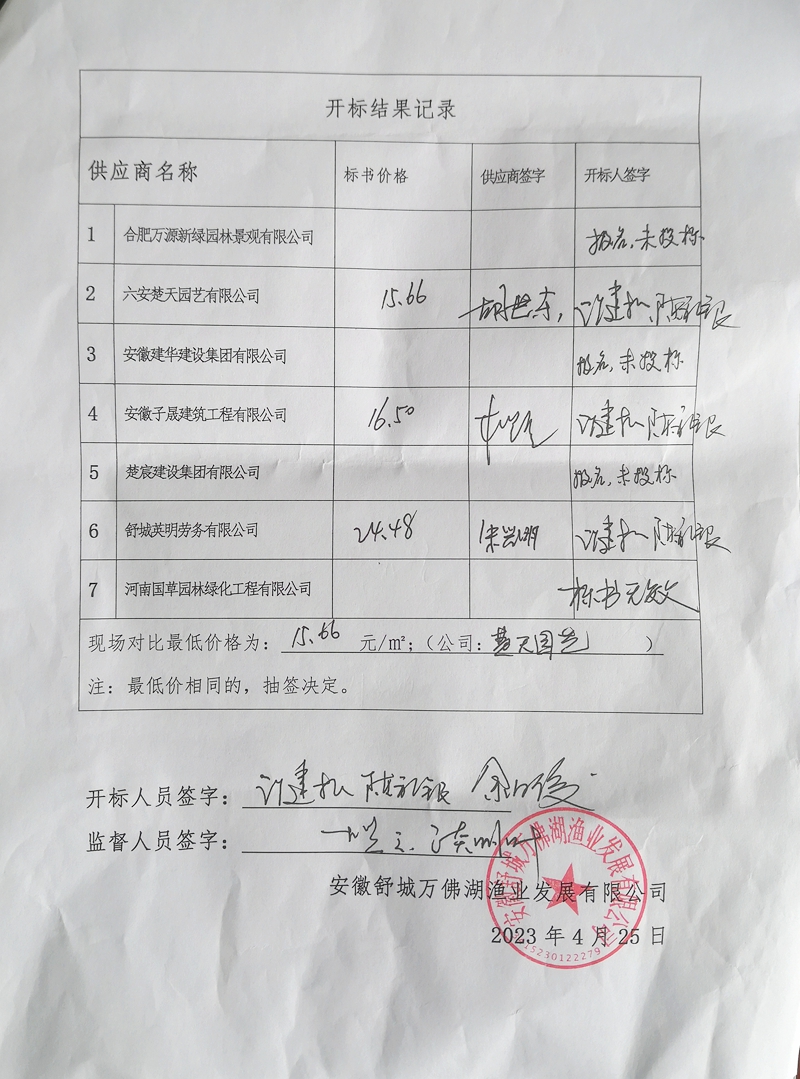 开标结果记录
供应商名称 标书价格 供应商签字 开标人签字
1 合肥万源新绿园林景观有限公司 报名,未投标
2 六安楚天园艺有限公司 15.66
3 安徽建华建设集团有限公司 报名,未投标
4 安徽子晟建筑工程有限公司 16.50
5 楚宸建设集团有限公司 报名,未投标
6 舒城英明劳务有限公司 24.48
7 河南国草园林绿化工程有限公司 标书无效
现场对比最低价格为: 15.66 元/m²;(公司:楚天园艺 )
注:最低价相同的,抽签决定。
开标人员签字:
监督人员签字:
安徽舒城万佛湖渔业发展有限公司
2023 年 4 月 25 日
安徽舒城万佛湖渔业发展有限公司